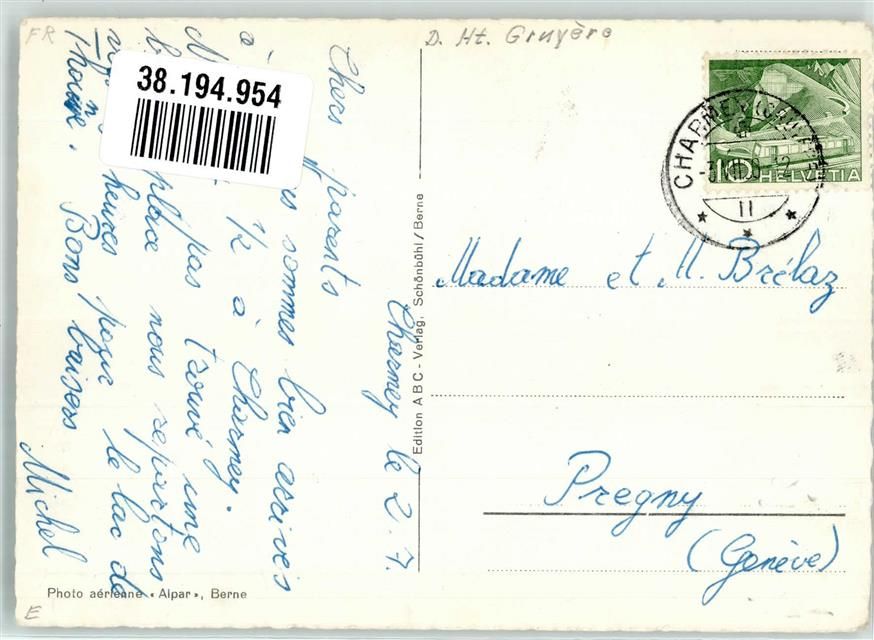 FR
D. Ht. Gruyère
38.194.954
HELVETIA
10
CHARMEY
11
Charmey le 2.7.
Chers parents
sommes bien arrivés
à Charmey.
pas trouvé une
place nous repartons
heures pour le lac de
Thoune. Bons baisers
Michel
Edition ABC - Verlag, Schönbühl / Berne
Madame et M. Brélaz
Pregny
(Genève)
Photo aérienne «Alpar», Berne
E